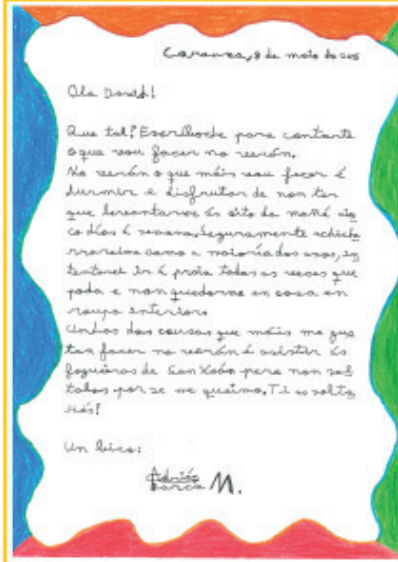 Caranza, 9 de maio do 2015
Ola David!
Que tal? Escríboche para contarte
o que vou facer no verán.
No verán o que máis vou facer é
durmir e disfrutar de non ter
que levantarme ás oito da mañá cin
co días á semana. Seguramente achicha
rrareime como a maioría dos anos, in
tentarei ir á praia todas as veces que
poda e non quedarme en casa en
roupa interior.
Unhas das cousas que máis me gus
tan facer no verán é asistir ás
fogueiras de San Xoán pero non sal
talas por se me queimo. Ti as salta
rás!
Un bico:
Adrián
García M.